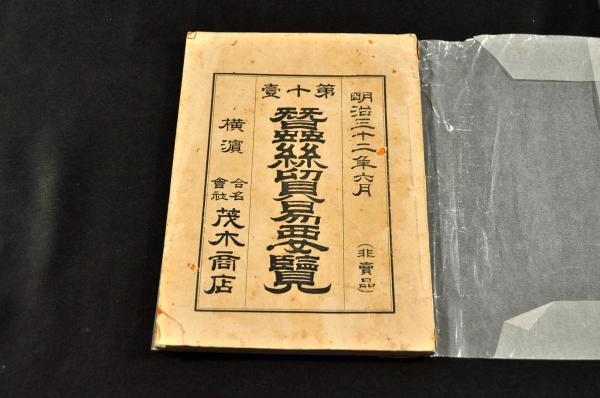 明治三十二年六月
(非賣品)
第十壹
蠶絲貿易要覽
橫濱
合名
會社
茂木商店